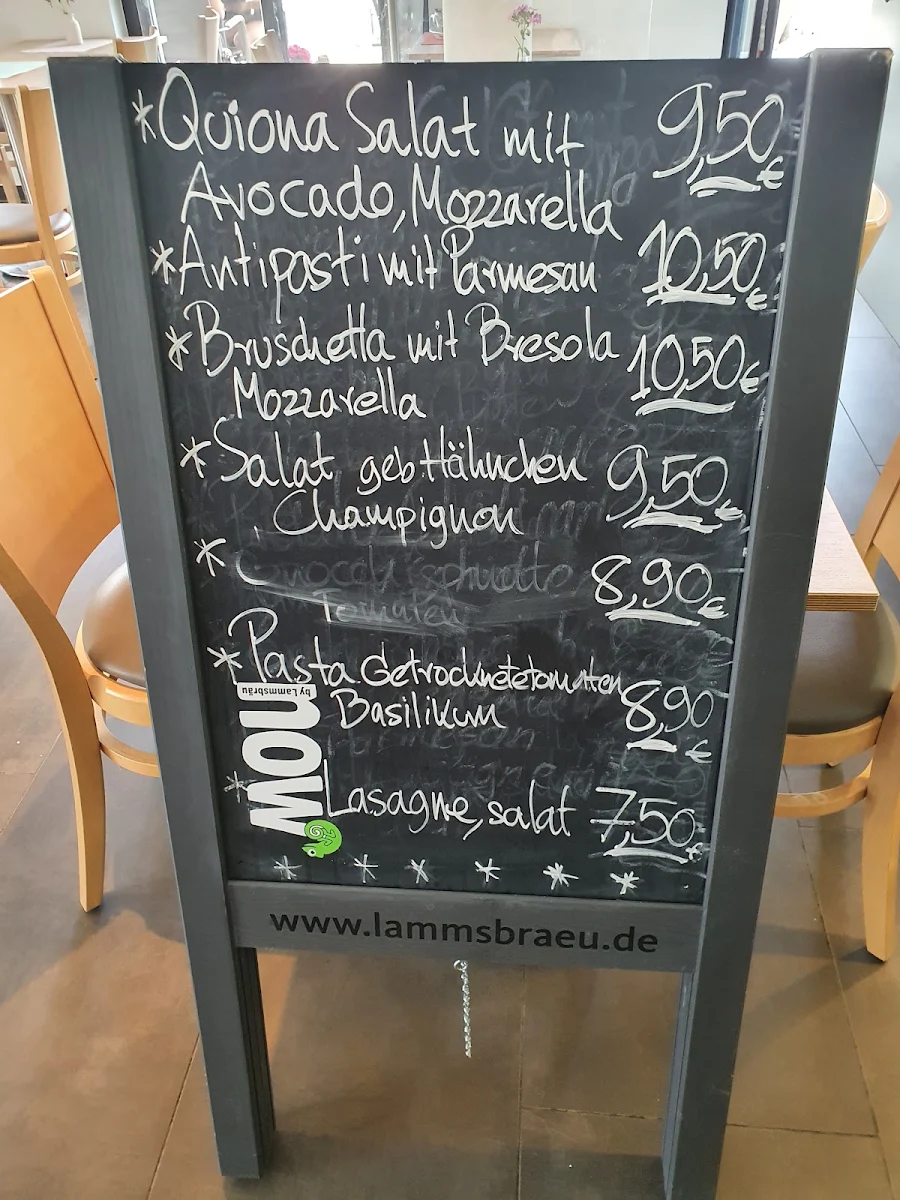 *Quiona Salat mit 9,50€
Avocado, Mozzarella
*Antipasti mit Parmesan 10,50€
*Bruschetta mit Bresola 10,50€
Mozzarella
*Salat geb Hähnchen 9,50€
, Champignon
* 8,90€
Tomaten
*Pasta Getrocknetetomaten 8,90€
Basilikum
by Lammsbräu
now
*Lasagne, salat 7,50€
* * * * * *
www.lammsbraeu.de